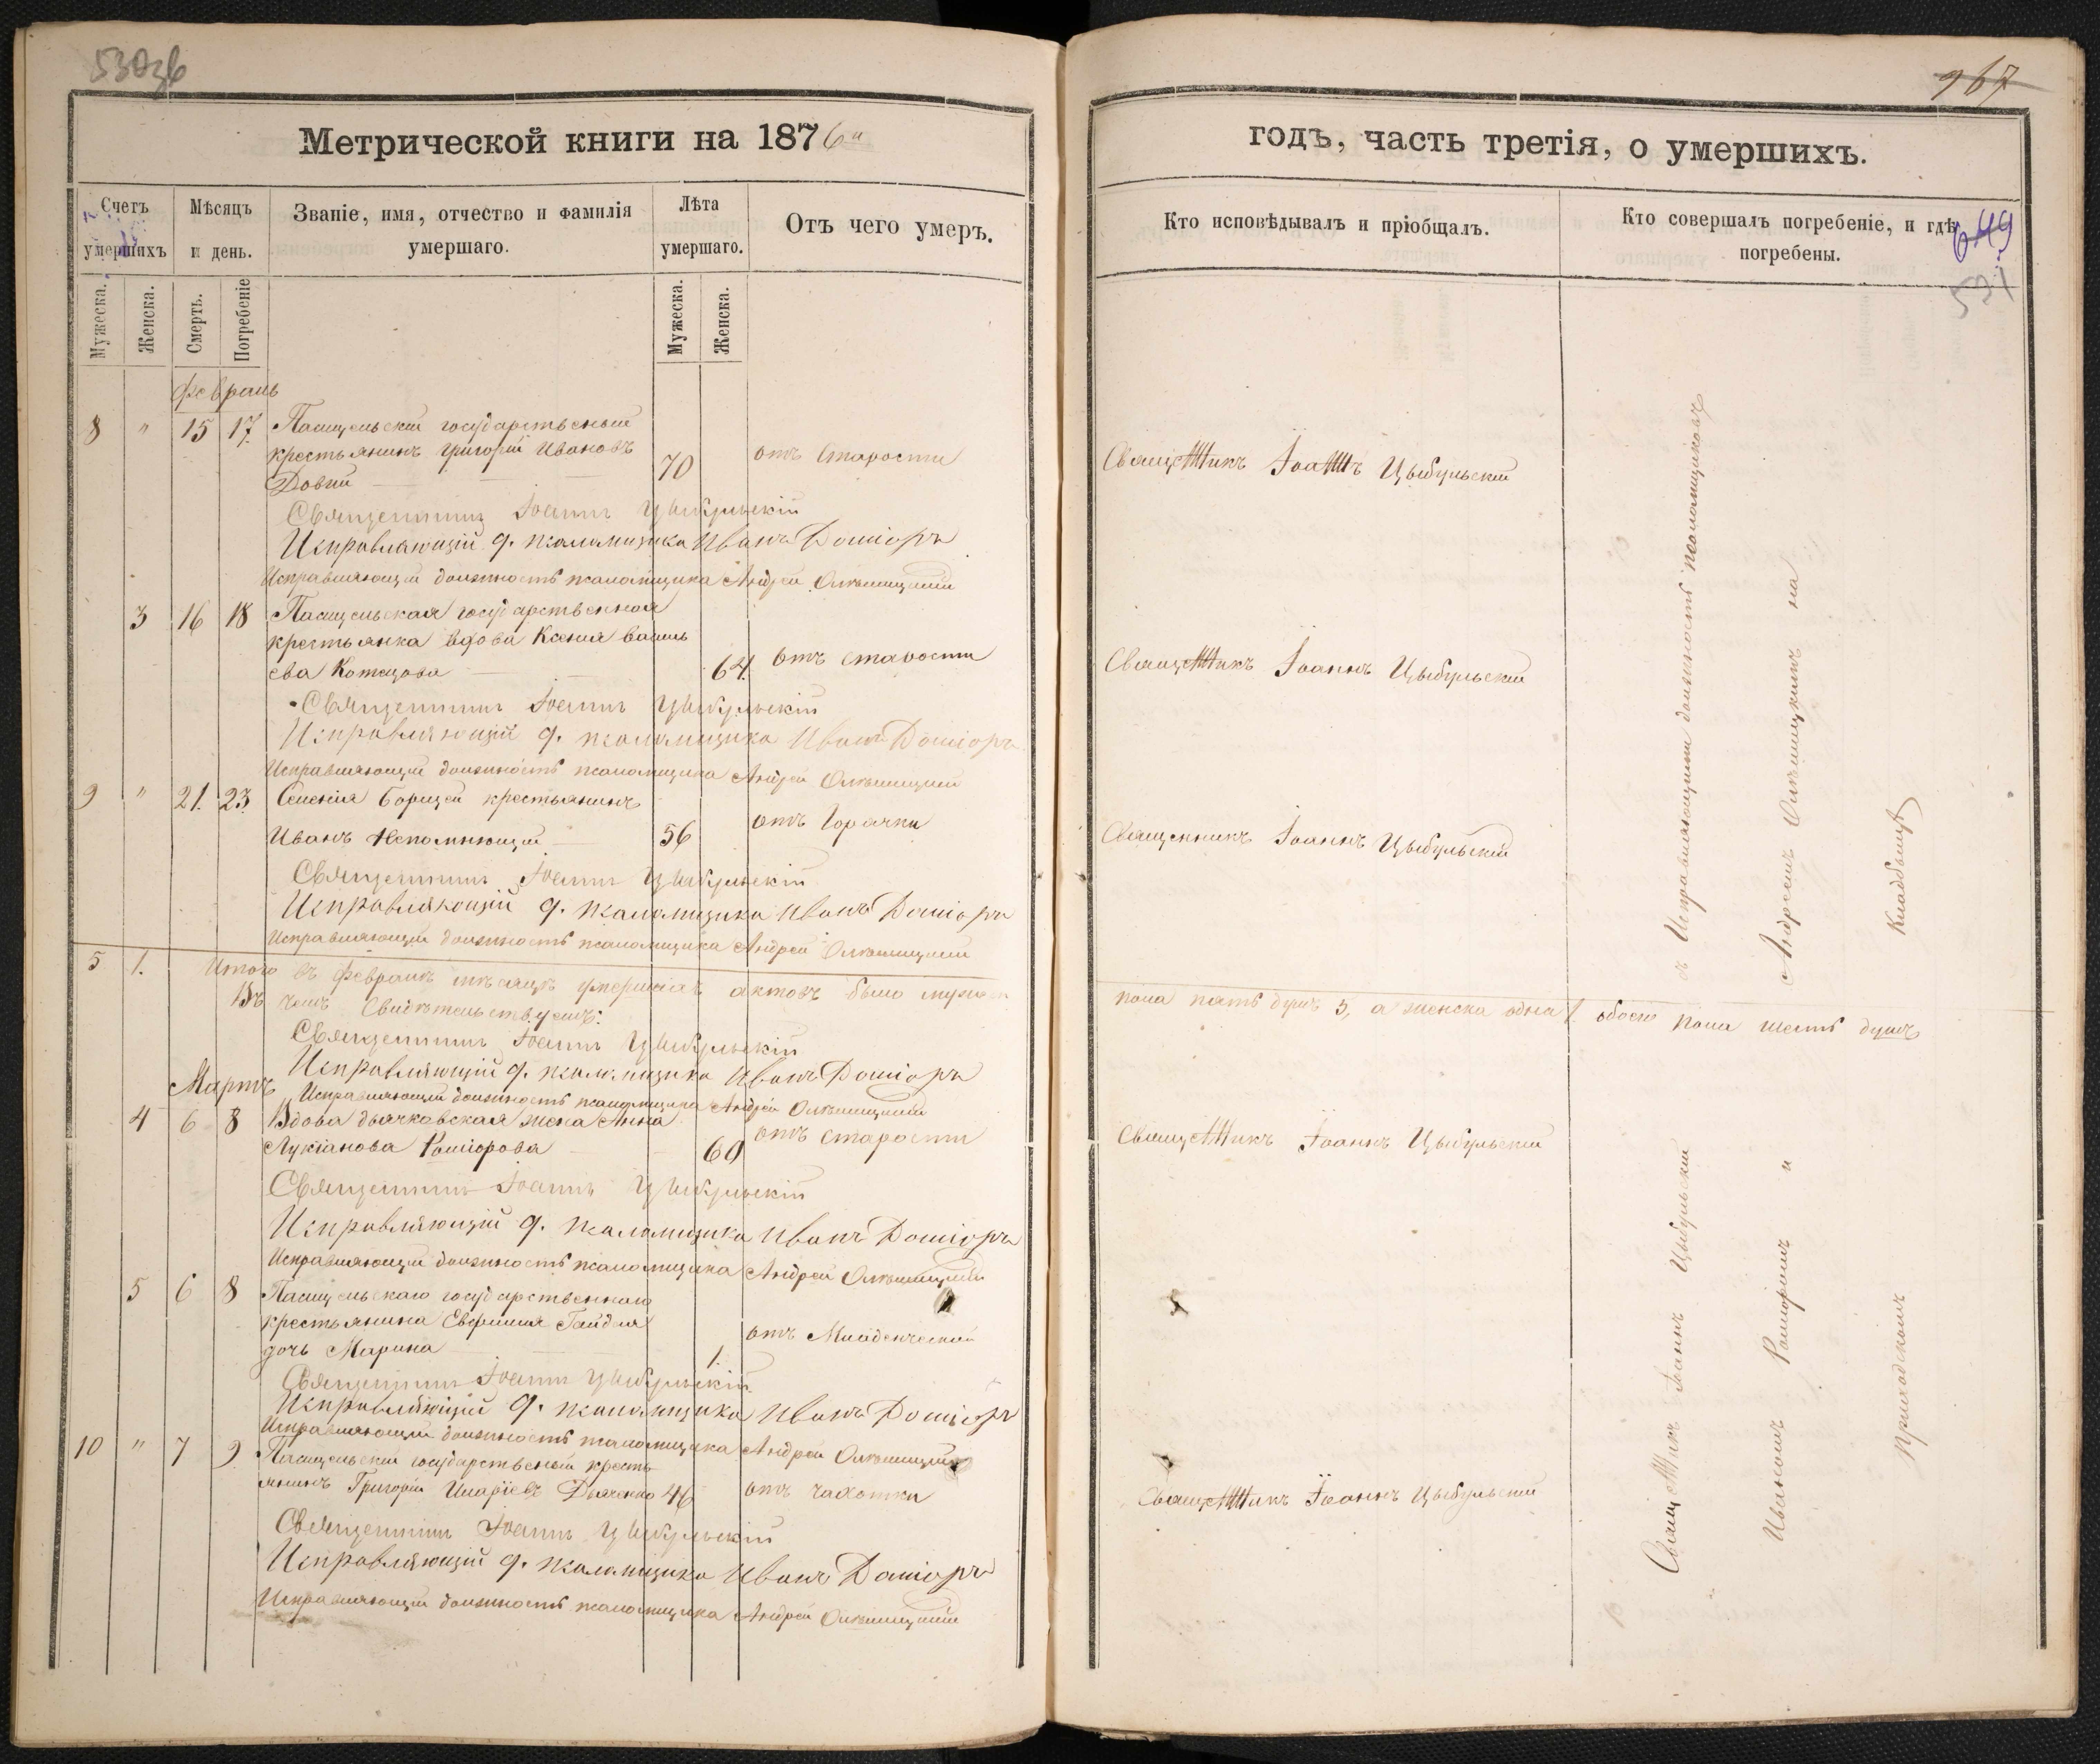 530зв
Метрической книги на 1876й
Счетъ умершихъ
Мѣсяцъ и день.
Званіе, имя, отчество и фамилія умершаго.
Лѣта умершаго.
Отъ чего умеръ.
Мужеска.
Женска.
Смерть.
Погребеніе
Мужеска.
Женска.
Февраль
8 " 15 17. государственный
крестьянинъ Григорій Ивановъ
Довгій 70 отъ старости
Священникъ Іоаннъ Цыбульскій
Исправляющій д. псаломщика Иванъ
Исправляющій должность псаломщика Андрей
3 16 18 государственная
крестьянка вдова Ксенія Василь
ева 64. отъ старости
Священникъ Іоаннъ Цыбульскій
Исправляющій д. псаломщика Иванъ
Исправляющій должность псаломщика Андрей
9 " 21. 23. крестьянинъ
Иванъ Непомнющій 56 отъ Горячки
Священникъ Іоаннъ Цыбульскій
Исправляющій д. псаломщика Иванъ
Исправляющій должность псаломщика Андрей
5 1. Итого въ Февралѣ мѣсяцѣ умершихъ актовъ было мужеска
Въ чемъ Свидѣтельствуемъ:
Священникъ Іоаннъ Цыбульскій
Исправляющій д. псаломщика Иванъ
Мартъ Исправляющій должность псаломщика Андрей
4 6 8 Вдова дьячковская жена Анна
Лукіанова 60 отъ старости
Священникъ Іоаннъ Цыбульскій
Исправляющій д. псаломщика Иванъ
Исправляющій должность псаломщика Андрей
5 6 8 государственнаго
крестьянина Евфимія Гайдая
дочь Марина 1. отъ Младенческой
Священникъ Іоаннъ Цыбульскій
Исправляющій д. псаломщика Иванъ
Исправляющій должность псаломщика Андрей
10 " 7 9 государственный кресть
янинъ Григорій Иларіевъ Дьяченко 46 отъ чахотки
Священникъ Іоаннъ Цыбульскій
Исправляющій д. псаломщика Иванъ
Исправляющій должность псаломщика Андрей
967
годъ, часть третія, о умершихъ.
Кто исповѣдывалъ и пріобщалъ.
Кто совершалъ погребеніе, и гдѣ погребены.
649
531
Священникъ Іоаннъ Цыбульскій
Священникъ Іоаннъ Цыбульскій
Священникъ Іоаннъ Цыбульскій
пола пять душъ 5, а женска одна 1 обоего пола шесть душъ
Священникъ Іоаннъ Цыбульскій
Священникъ Іоаннъ Цыбульскій
Священникъ Іоаннъ Цыбульскій съ Исправляющими должность псаломщиковъ
Иваномъ и Андреемъ на
Приходскомъ Кладбищѣ